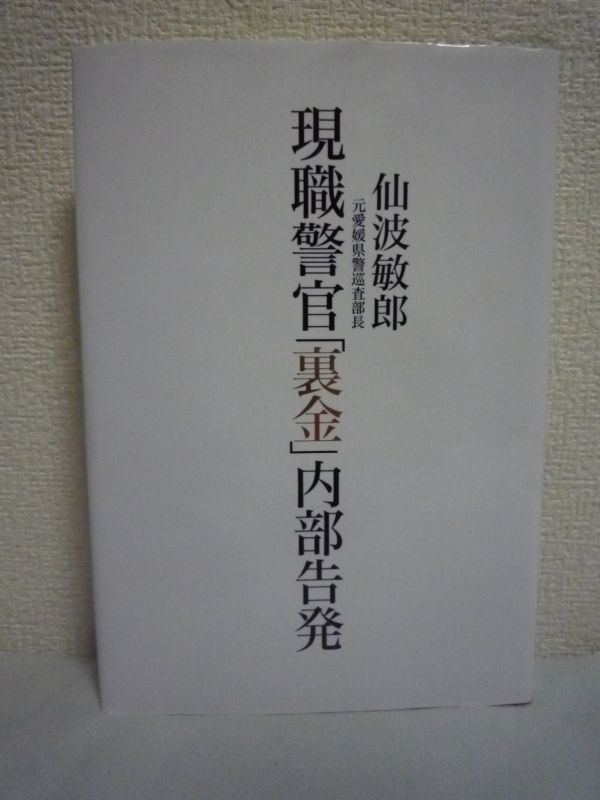 仙波敏郎
元愛媛県警巡査部長
現職警官「裏金」内部告発